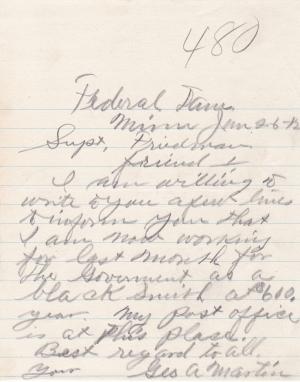 480
Federal Dam
Minn Jan 26-12
Supt, Friedman
friend
I am willing to
write to you a few lines
to inform you that
I am now working
for last month for
the Goverment as a
black Smith at $600.
year. My post office
is at this place.
Best regard to all.
Your Geo A Martin